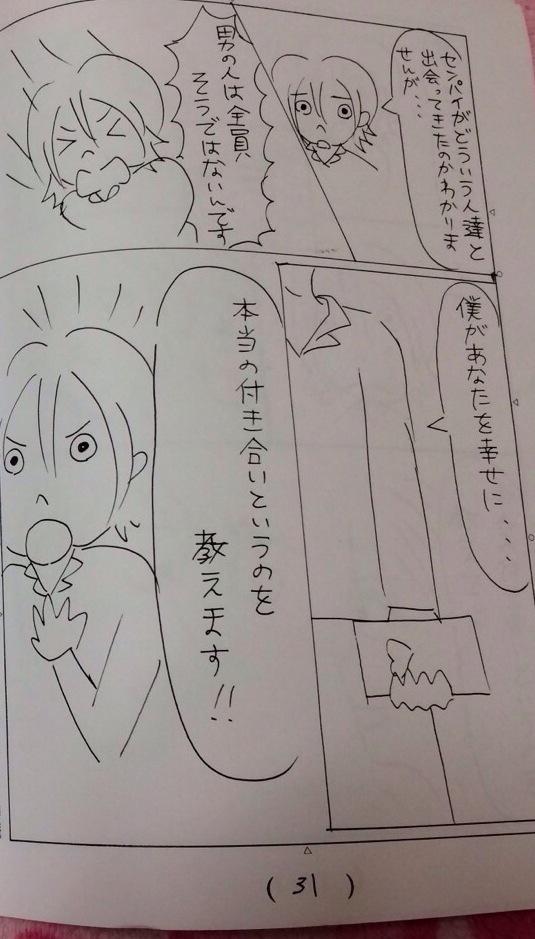 センパイがどういう人達と
出会ってきたのかわかりま
せんが...
男の人は全員
そうではないんです
僕があなたを幸せに...
本当の付き合いというのを
教えます!!
(31)